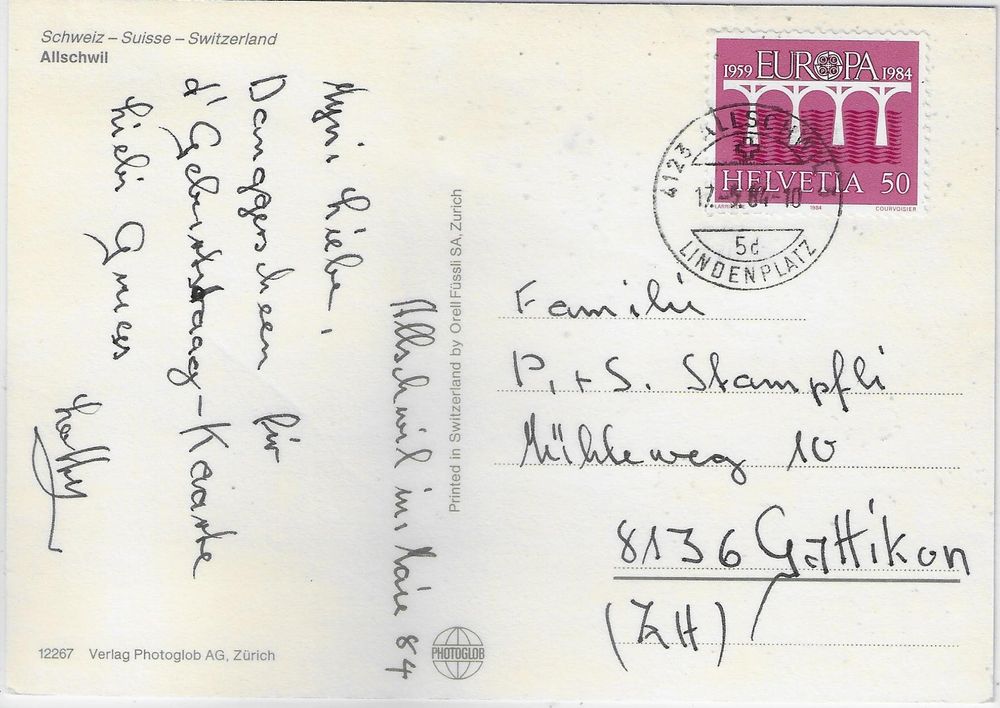 Schweiz – Suisse – Switzerland
Allschwil
1959 EUROPA 1984
HELVETIA 50
LARR 1984 COURVOISIER
4123 ALLSCHWIL 1
17.-5.84-10
5d
LINDENPLATZ
Allschwil im Maie 84
Myni Liebe,
Danggerscheen für
d'Geburtstaag-Kaarte
Liebi Griess
Lotty
Printed in Switzerland by Orell Füssli SA, Zurich
Familie
P. + S. Stampfli
Mühleweg 10
8136 Gattikon
(ZH)
12267 Verlag Photoglob AG, Zürich
PHOTOGLOB